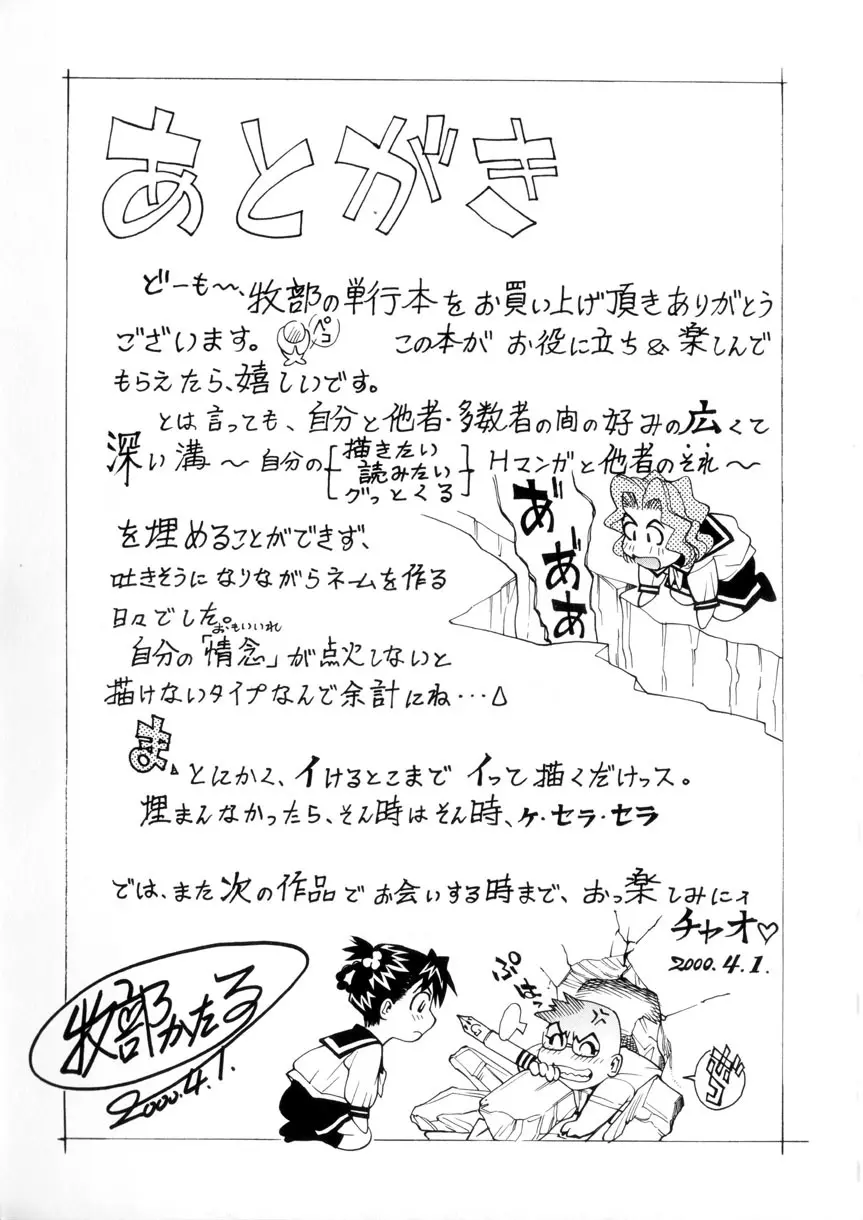 あとがき
どーも～、牧部の単行本をお買い上げ頂きありがとう
ございます。ペコ この本がお役に立ち&楽しんで
もらえたら、嬉しいです。
とは言っても、自分と他者・多数者の間の好みの広くて
深い溝～自分の[描きたい
読みたい
グっとくる]Hマンガと他者のそれ～
を埋めることができず、
吐きそうになりながらネームを作る
日々でした。
おもいいれ
自分の「情念」が点火しないと
描けないタイプなんで余計にね…
あ゛あ゛あ゛あ
ま、とにかく、イけるとこまでイって描くだけっス。
埋まんなかったら、そん時はそん時、ケ・セラ・セラ
では、また次の作品でお会いする時まで、おっ楽しみにィ
チャオ♡
2000.4.1.
牧部かたる
2000.4.1.